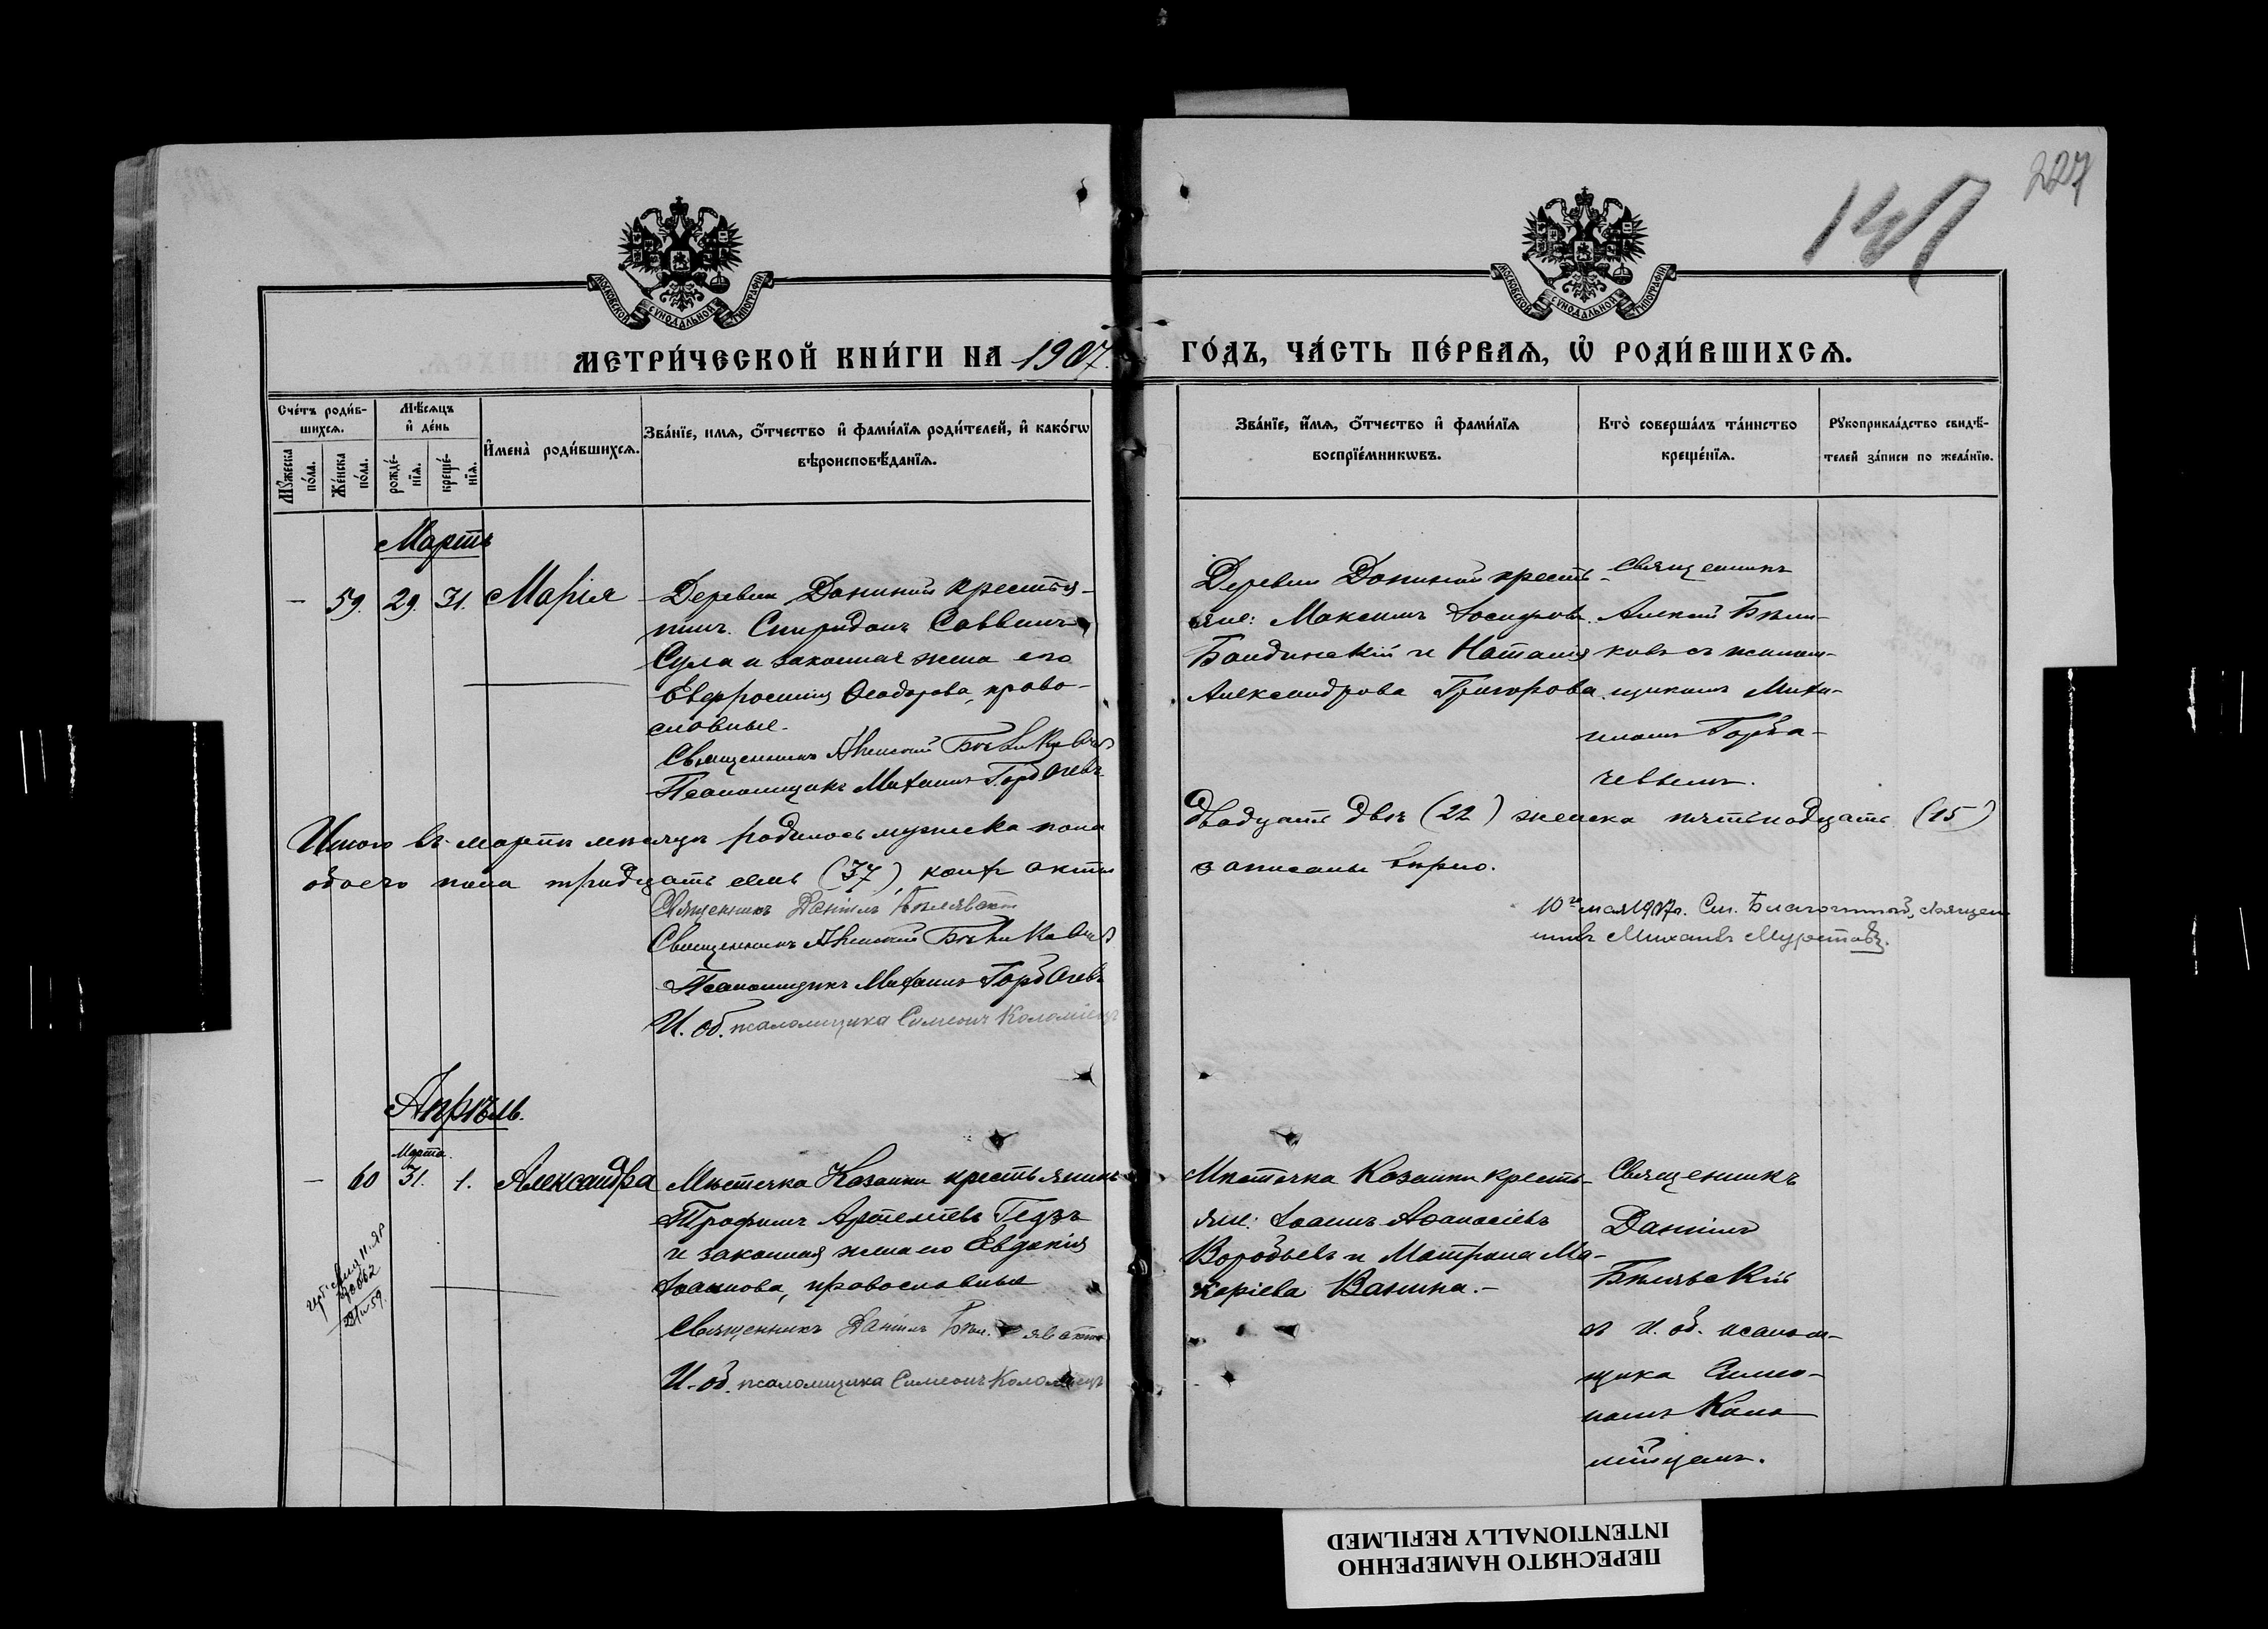 227
147
МОСКОВСКОЙ СѴНОДАЛЬНОЙ ТИПОГРАФІИ
МОСКОВСКОЙ СѴНОДАЛЬНОЙ ТИПОГРАФІИ
МЕТРИ́ЧЕСКОЙ КНИ́ГИ НА 1907.
ГО́ДЪ, ЧА́СТЬ ПЕ́РВАѦ, Ѡ҆ РОДИ́ВШИХСѦ.
Сче́тъ роди́в-
шихсѧ.
Мѣ́сѧцъ
и҆ де́нь
Мꙋ́жеска
по́ла.
Же́нска
по́ла.
рожде́-
нїѧ.
креще́-
нїѧ.
И҆мена̀ роди́вшихсѧ.
Зва́нїе, имѧ, о҆́тчество и҆ фами́лїѧ роди́телей, и҆ како́гѡ
вѣроисповѣ́данїѧ.
Зва́нїе, и҆́мѧ, о҆́тчество и҆ фами́лїѧ
воспрїе́мникѡвъ.
Кто̀ соверша́лъ та́инство
креще́нїѧ.
Рꙋкоприкла́дство свидѣ́-
телей за́писи по жела́нїю.
Мартъ
— 59. 29. 31. Марія
Деревни Донинки крестья-
нинъ Спиридонъ Саввинъ
Сула и законная жена его
Евфросинія Ѳеодорова, право-
славные.
Священникъ Алексій Бѣликовъ
Псаломщикъ Михаилъ Горбачевъ
Деревни Донинки кресть-
яне: Максимъ Іосифовъ
Бондинскій и Наталія
Александрова Григорова.
Священникъ
Алексій Бѣли-
ковъ съ псалом-
щикомъ Миха-
иломъ Горба-
чевымъ.
Итого въ мартѣ мѣсяцѣ родилось мужеска пола
двадцать два (22) женска пятьнадцать (15)
обоего пола тридцать семь (37), коихъ акты
записаны вѣрно.
Священникъ Даніилъ
Священникъ Алексій Бѣликовъ
Псаломщикъ Михаилъ Горбачевъ
И. об. псаломщика Симеонъ Коломіецъ
10го мая 1907 г. См. Благочинный, священ
никъ Михаилъ
Апрѣль.
Марта
— 60 31. 1. Александра
Мѣстечка Козанки крестьянинъ
Трофимъ Артеміевъ Гедзъ
и законная жена его Евдокія
Іоаннова, православные
Священникъ Даніилъ
И. об. псаломщика Симеонъ Коломіецъ
Мѣстечка Козанки кресть-
яне: Іоаннъ Аѳанасіевъ
Воробьевъ и Матрона Ма-
каріева Ванина.—
Священникъ
Даніилъ
Бѣлявскій
съ И. об. псалом-
щика Симео-
номъ Коло-
мійцемъ.
ПЕРЕСНЯТО НАМЕРЕННО
INTENTIONALLY REFILMED